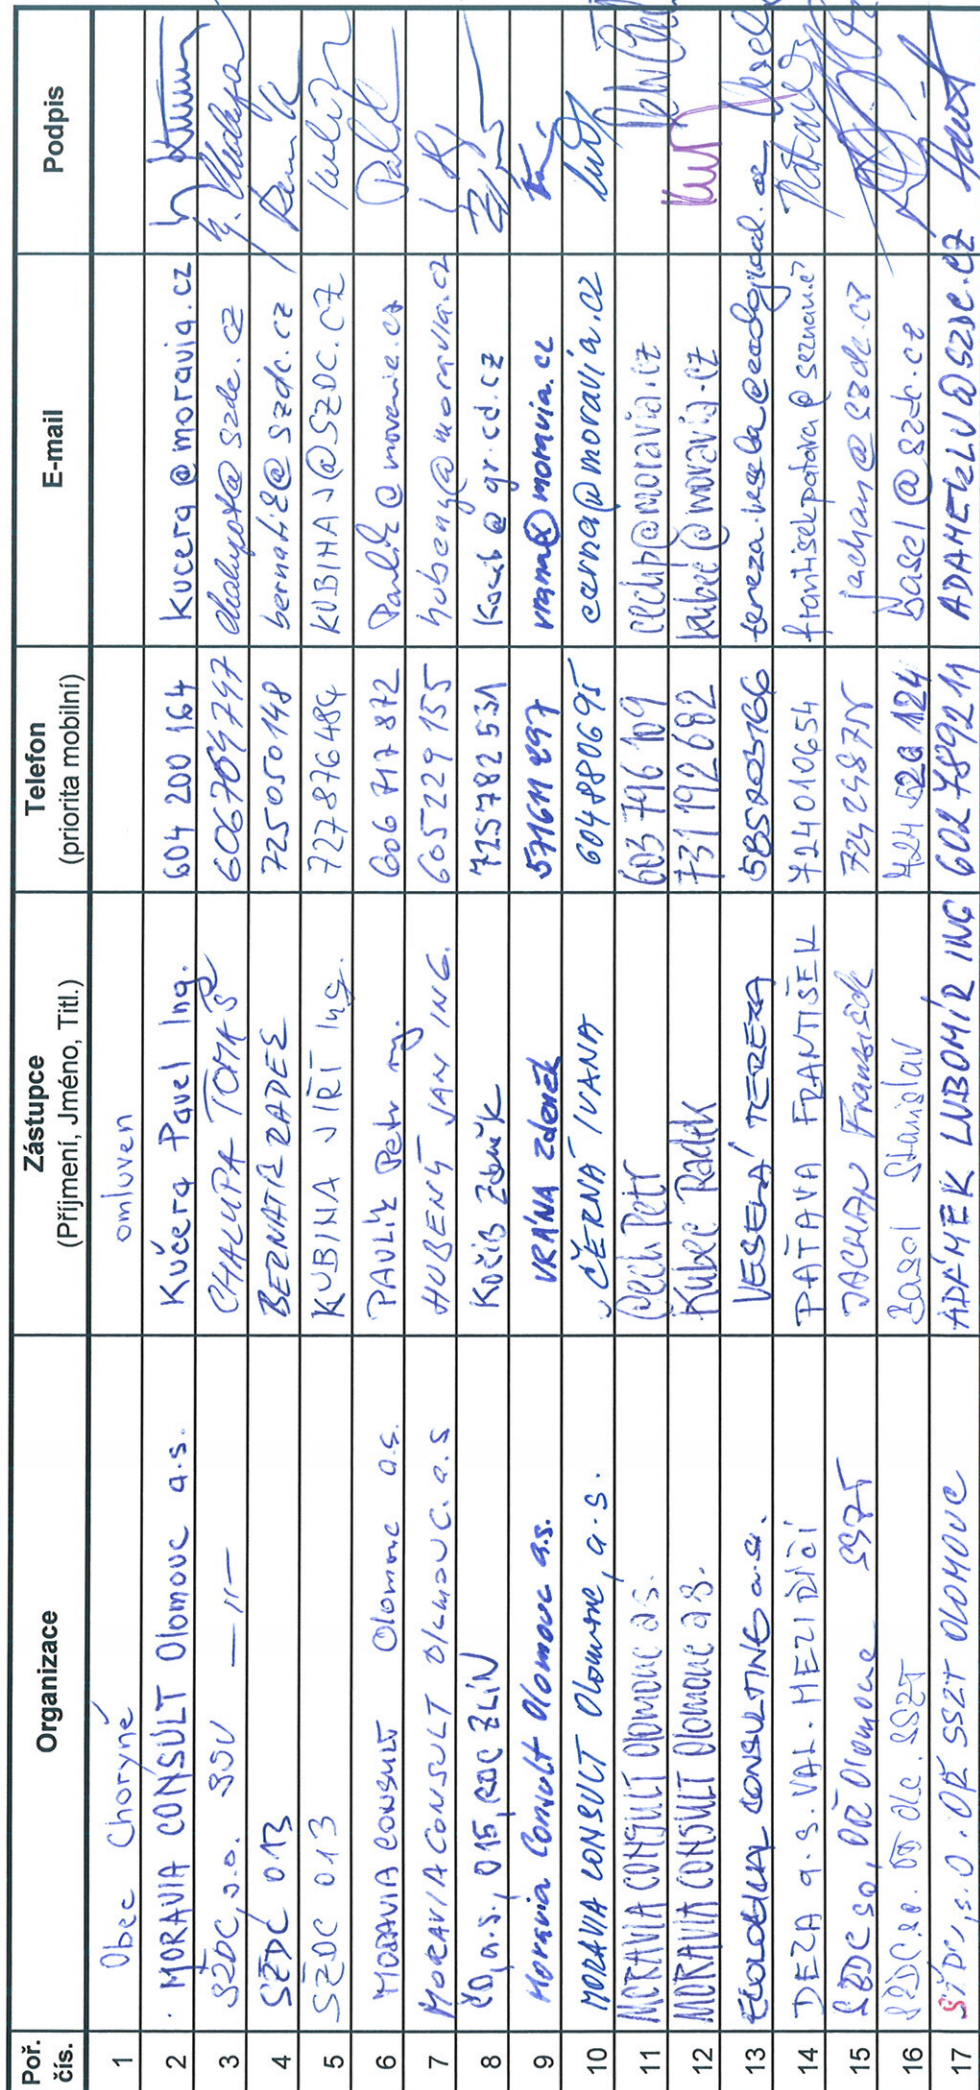 Poř. čís. Organizace Zástupce (Příjmení, Jméno, Titl.) Telefon (priorita mobilní) E-mail Podpis
1 Obec Choryně omluven
2 MORAVIA CONSULT Olomouc a.s. Kučera Pavel Ing. 604 200 164 kucera@moravia.cz
3 SŽDC, s.o. SSV —"— CHALUPA TOMÁŠ 606709747 chalupat@szdc.cz
4 SŽDC 013 BERNATÍK RADEK 725050148 bernatik@szdc.cz
5 SŽDC 013 KUBINA JIŘÍ Ing. 727876484 KUBINAJ@SZDC.CZ
6 MORAVIA CONSULT Olomouc a.s. PAVLÍK Petr ing. 606 717 872 Pavlik@moravia.cz
7 MORAVIA CONSULT OLOMOUC. a.s HUBENÝ JAN ING. 605229155 hubeny@moravia.cz
8 ČD, a.s., 015, RCC ZLÍN Kočíb Zbyněk 725782531 Kocib@gr.cd.cz
9 Moravia Consult Olomouc a.s. VRÁNA Zdeněk vrana@moravia.cz
10 MORAVIA CONSULT Olomouc, a.s. ČERNÁ IVANA 604880695 cerna@moravia.cz
11 MORAVIA CONSULT Olomouc a.s. Čech Petr 603 796 109 cechp@moravia.cz
12 MORAVIA CONSULT Olomouc a.s. Kubec Radek 731 192 602 kubec@moravia.cz
13 ECOLOGICAL CONSULTING a.s. VESELÁ TEREZA 585203166
14 DEZA a.s. VAL. MEZIŘÍČÍ PAŤAVA FRANTIŠEK 724010654 frantisekpatava@seznam.cz
15 SŽDC so, OŘ Olomouc SSZT JACHAN František jachan@szdc.cz
16 SŽDC, so. OŘ Olc. SSZT Basel Stanislav basel@szdc.cz
17 SŽDC, s.o. OŘ SSZT OLOMOUC ADÁMEK LUBOMÍR ING 602789211 ADAMEKLU@SZDC.CZ